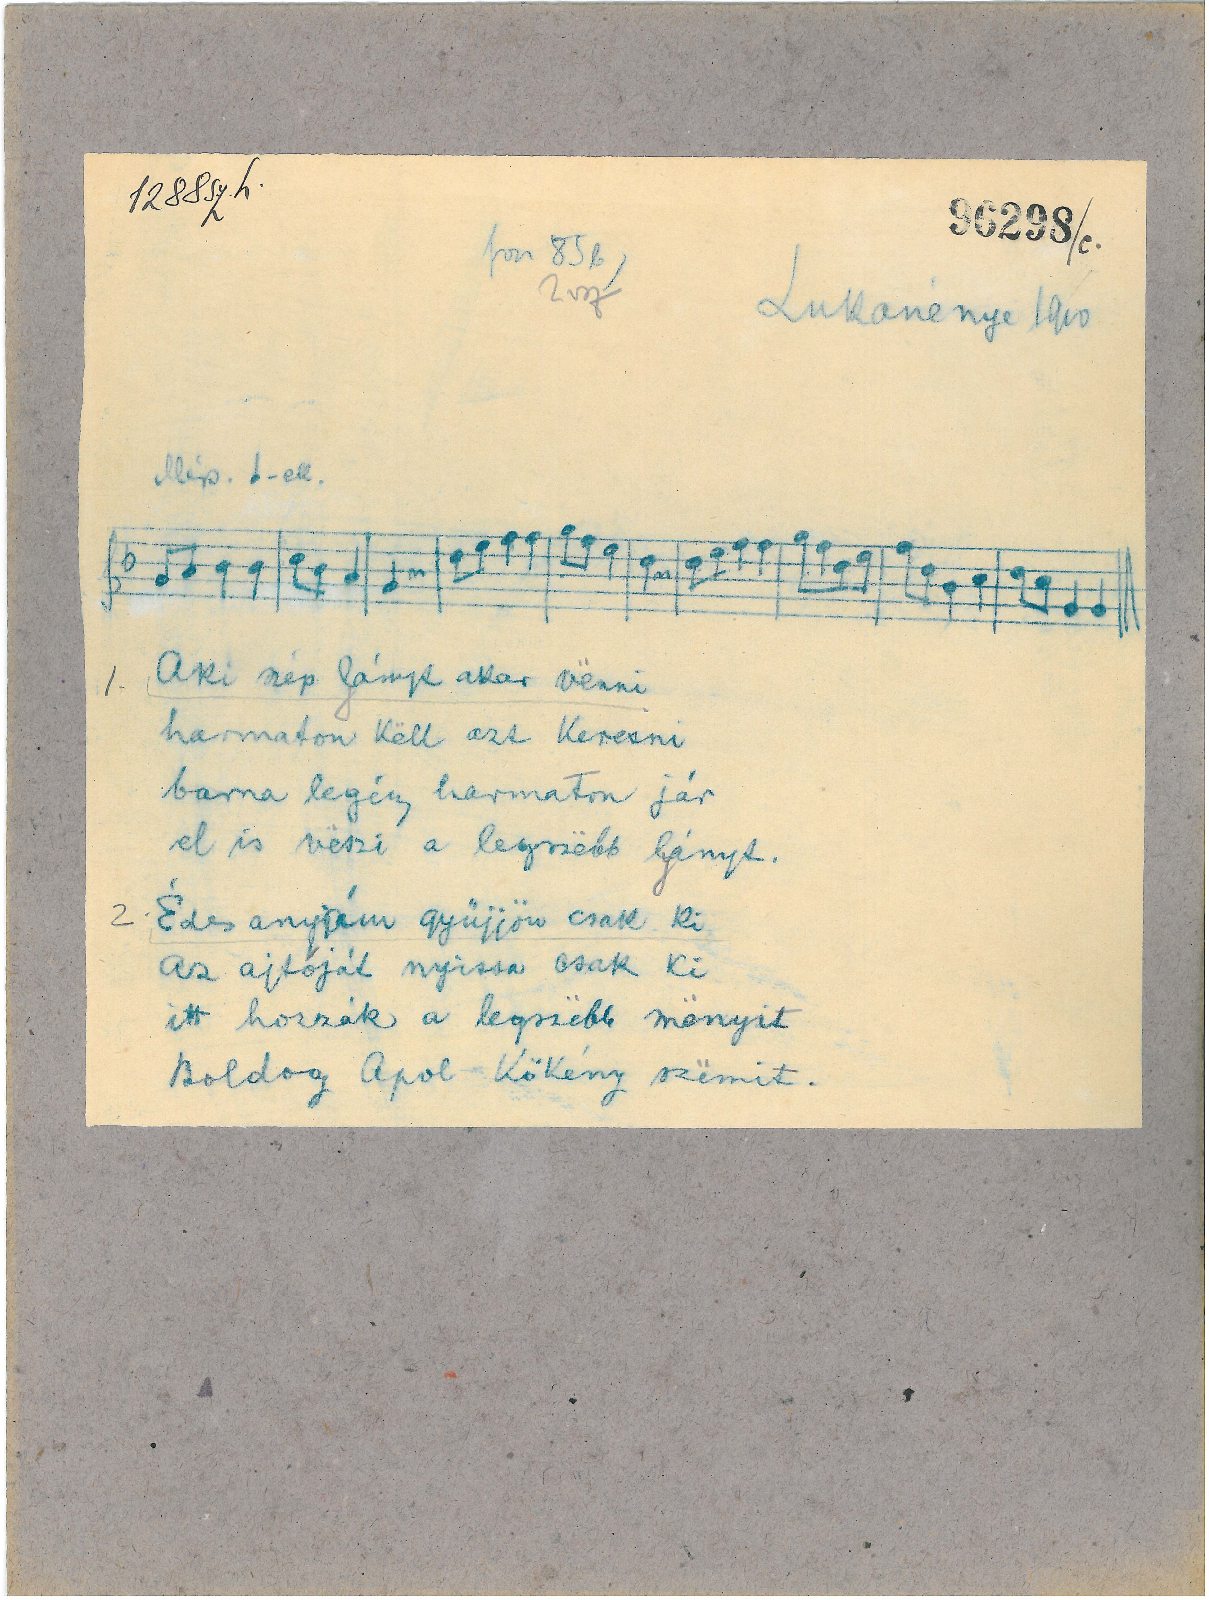 1288 sz. h.
96298/c.
fon 85b,
Lukanénye 1910
1. Aki szép ljányt akar vënni
harmaton këll azt keresni
barna legény harmaton jár
el is vëszi a legszëbb ljányt.
2. Édes anyjám gyüjjön csak ki
Az ajtóját nyissa csak ki
itt hozzák a legszëbb mënyit
Boldog Apol kökény szëmit.